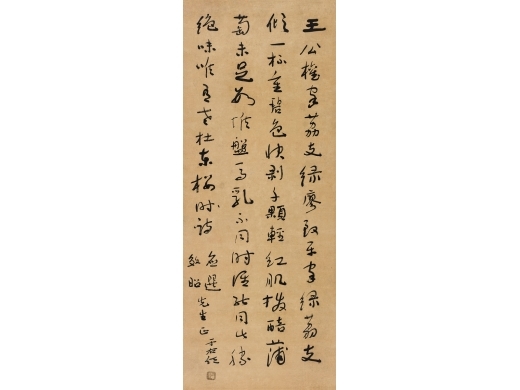 王公權家荔支緑廖致平家緑荔支
傾一杯重碧色快剥千顆輕紅肌撥醅蒲
萄未足數堆盤馬乳不同時誰能同此勝
絶味唯有老杜東樓時詩
先生正 于右任